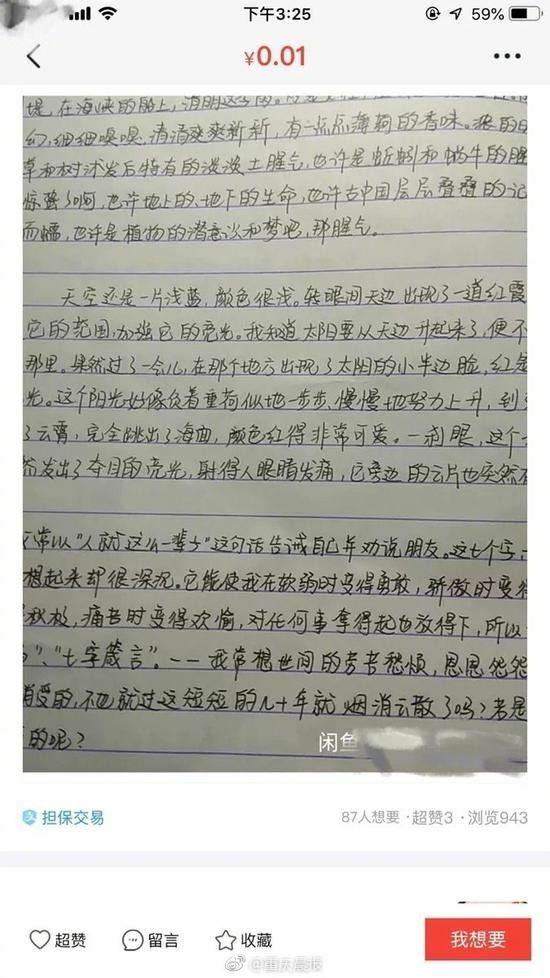 下午3:25
59%
¥0.01
堤,在海峡的船上,消阴这
幻,细细嗅嗅,清清爽爽新新,有一点点薄荷的香味。浓的
草和树沐发后特有的淡淡土腥气,也许是蚯蚓和蜗牛的腥
惊蛰了啊,也许地上的地下的生命,也许古中国层层叠叠的记
而蠕,也许是植物的潜意识和梦吧,那腥气。
天空还是一片浅蓝,颜色很浅。转眼间天边出现了一道红霞
它的范围,加强它的亮光。我知道太阳要从天边升起来了,便不
那里。果然过了一会儿,在那个地方出现了太阳的小半边脸,红是
光。这个阳光好像负着重荷似地一步步、慢慢地努力上升,到
了云霄,完全跳出了海面,颜色红得非常可爱。一刹眼,这个
然发出了夺目的亮光,射得人眼睛发痛,它旁边的云片也突然有
常以"人就这么一辈子"这句话告诫自己并劝说朋友。这七个字,
想起来却很深沉。它能使我在软弱时变得勇敢,骄傲时变得
积极,痛苦时变得欢愉,对任何事拿得起也放得下,所以
"、"七字箴言"。——我常想世间的劳苦愁烦、恩恩怨怨
消受的,不也就过这短短的几十年就烟消云散了吗?若是
的呢?
闲鱼
担保交易 87人想要·超赞3·浏览943
超赞 留言 收藏 我想要
@重庆晨报